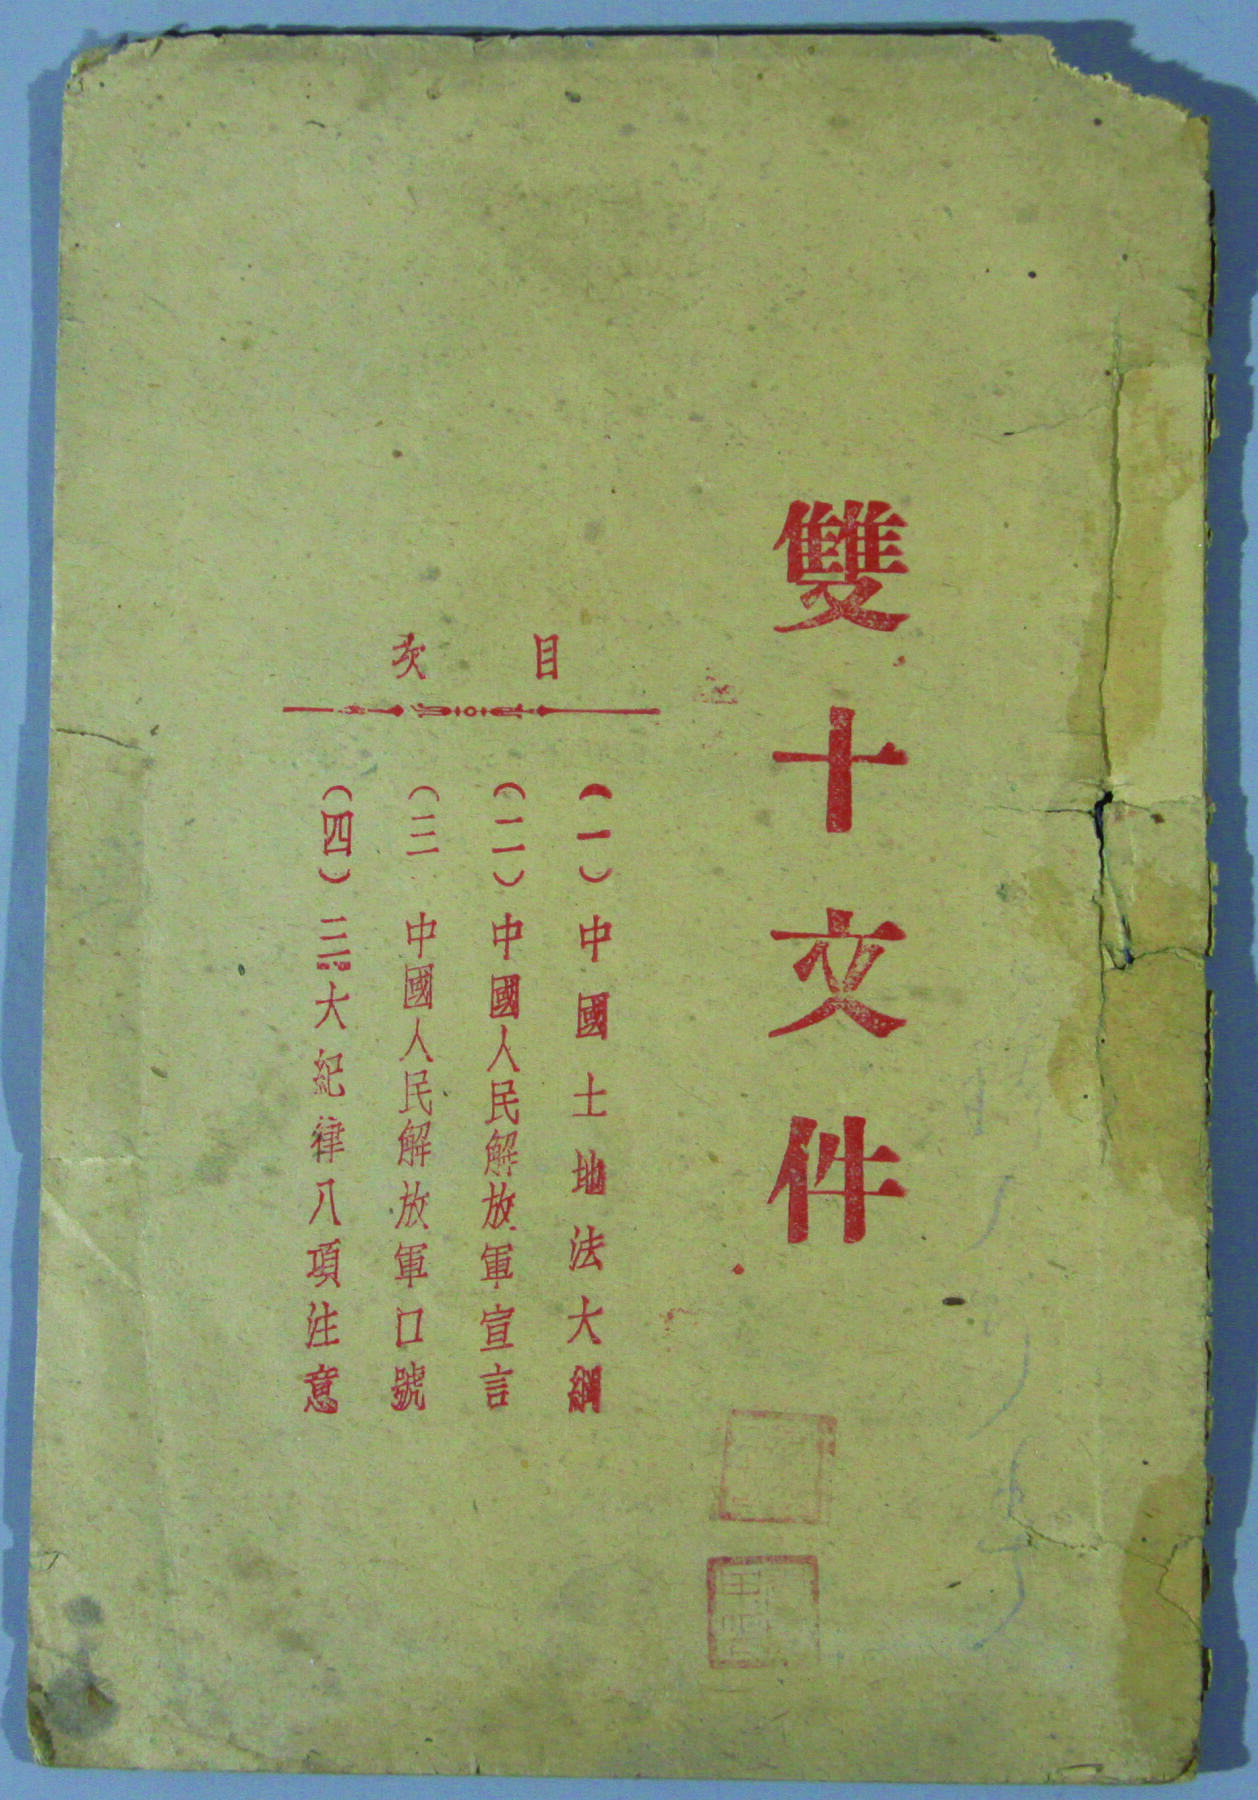 雙十文件
目次
(一)中國土地法大綱
(二)中國人民解放軍宣言
(三 中國人民解放軍口號
(四)三大紀律八項注意